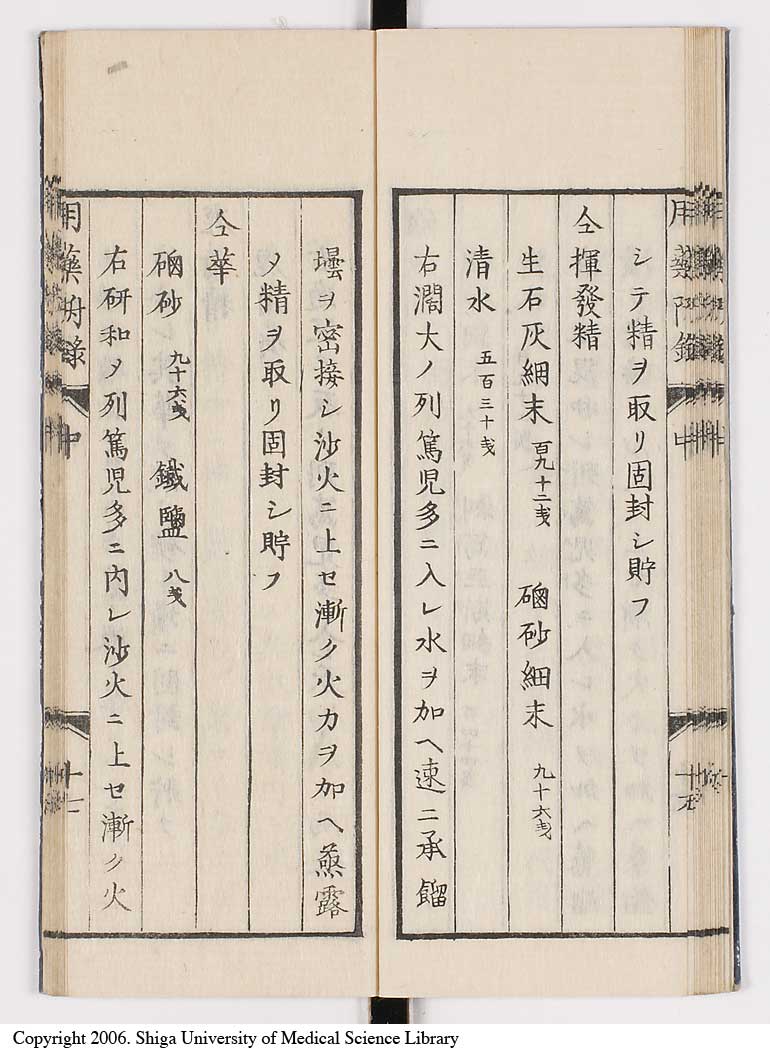 シテ精ヲ取リ固封シ貯フ
仝揮發精
生石灰細末 百九十二戔 磠砂細末 九十六戔
清水 五百三十戔
右濶大ノ列篤児多ニ入レ水ヲ加ヘ速ニ承餾
壜ヲ密接シ沙火ニ上セ漸ク火力ヲ加ヘ蒸露
メ精ヲ取リ固封シ貯フ
仝華
磠砂 九十六戔 鐵鹽 八戔
右研和メ列篤児多ニ内レ沙火ニ上セ漸ク火
用藥附録 中
Copyright 2006. Shiga University of Medical Science Library